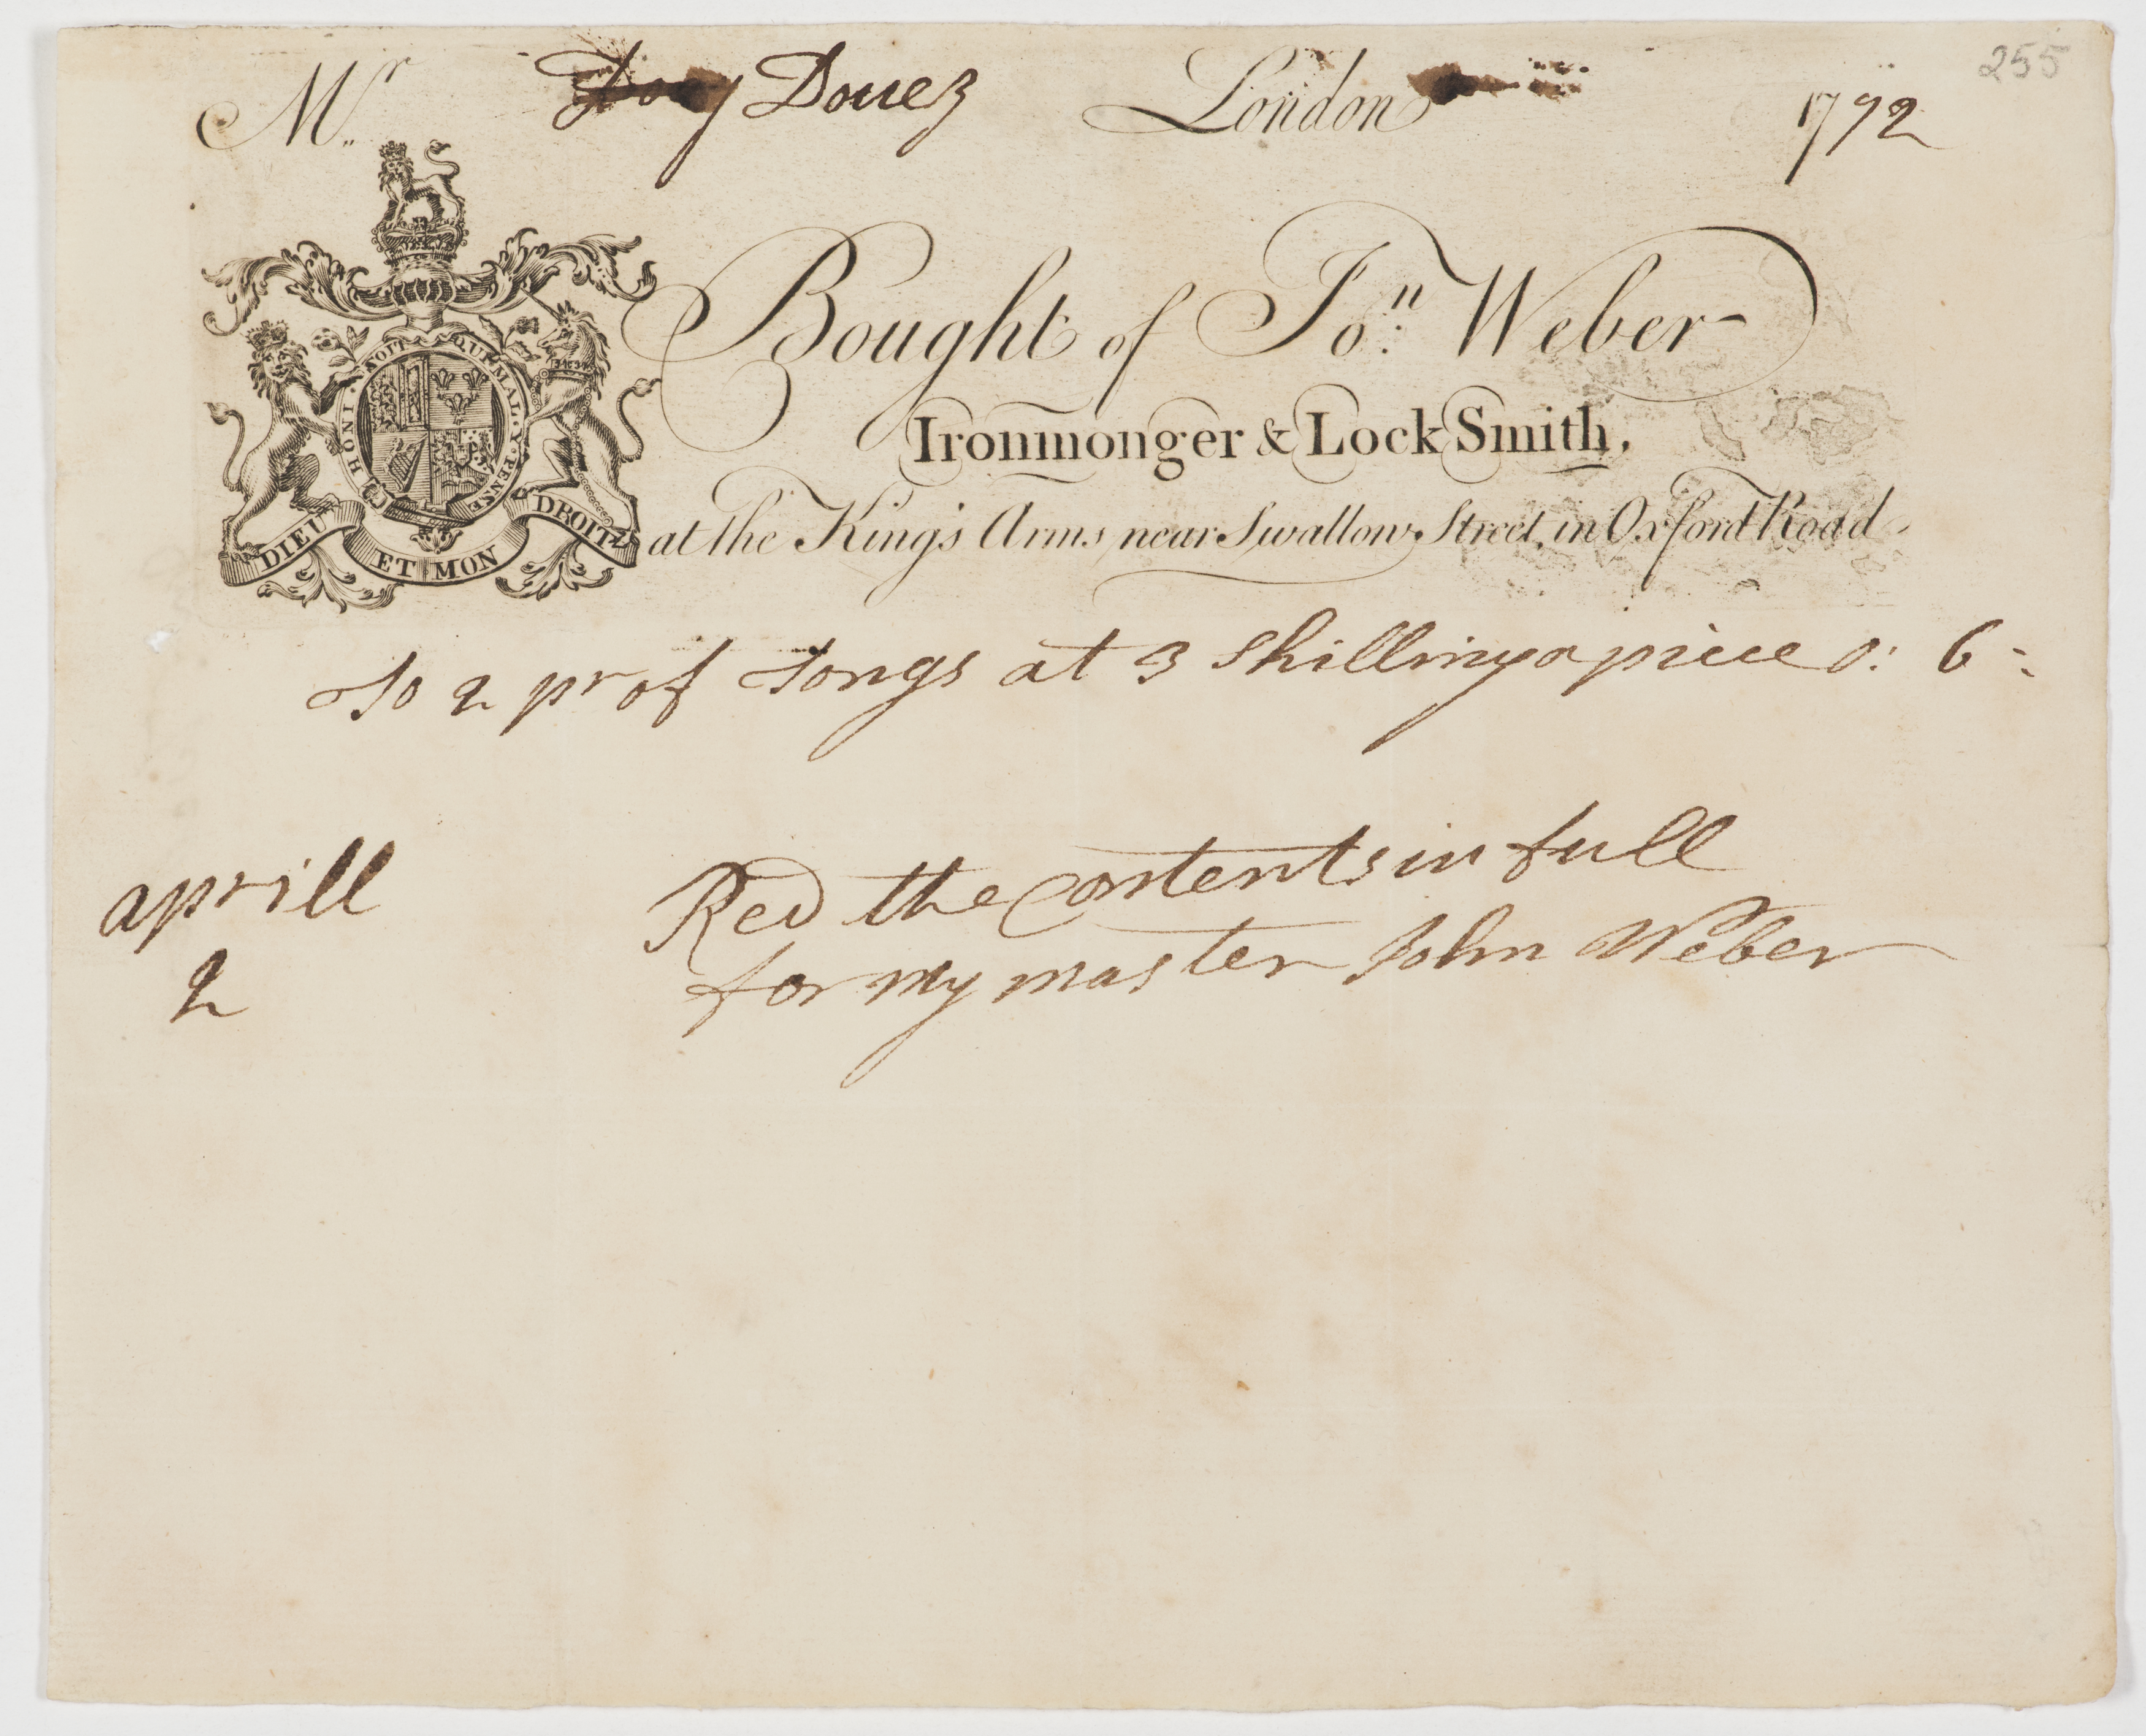 255
Mr. Douez London 1792
Bought of Jon. Weber
Ironmonger & Lock Smith,
at the King's Arms near Swallow Street, in Oxford Road
HONI SOIT QUI MAL Y PENSE
DIEU ET MON DROIT
To 2 pr of tongs at 3 shillings a piece 0: 6-:
aprill
2
Red the contents in full
for my master John Weber